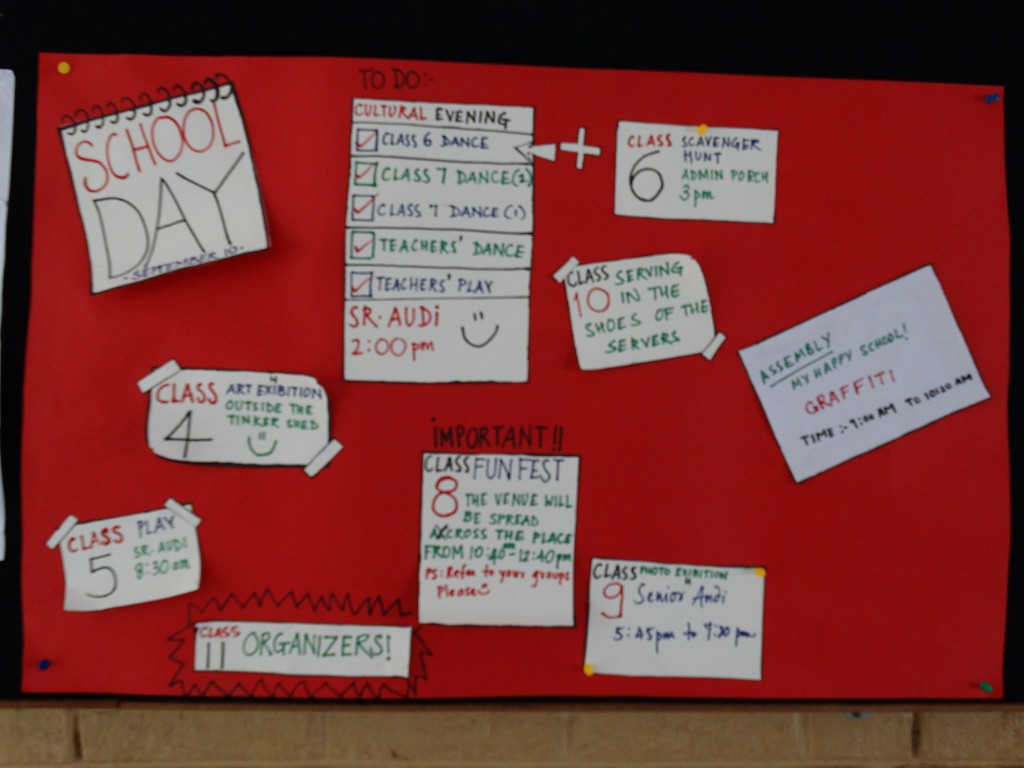 SCHOOL
DAY
-SEPTEMBER 10-
TO DO:-
CULTURAL EVENING
CLASS 6 DANCE
CLASS 7 DANCE(2)
CLASS 7 DANCE(1)
TEACHERS' DANCE
TEACHERS' PLAY
SR. AUDI
2:00pm
+
CLASS 6
SCAVENGER
HUNT
ADMIN PORCH
3pm
CLASS 10
SERVING
IN THE
SHOES OF THE
SERVERS
ASSEMBLY
MY HAPPY SCHOOL!
GRAFFITI
TIME :- 9:00 AM TO 10:20 AM
CLASS 4
ART EXHIBITION
OUTSIDE THE
TINKER SHED
IMPORTANT!!
CLASS 8
FUN FEST
THE VENUE WILL
BE SPREAD
ACROSS THE PLACE
FROM 10:40-12:40pm
PS: Refer to your groups
Please
CLASS 5
PLAY
SR. AUDI
8:30am
CLASS 9
PHOTO EXHIBITION
Senior Audi
5:45pm to 7:30 pm
CLASS 11
ORGANIZERS!